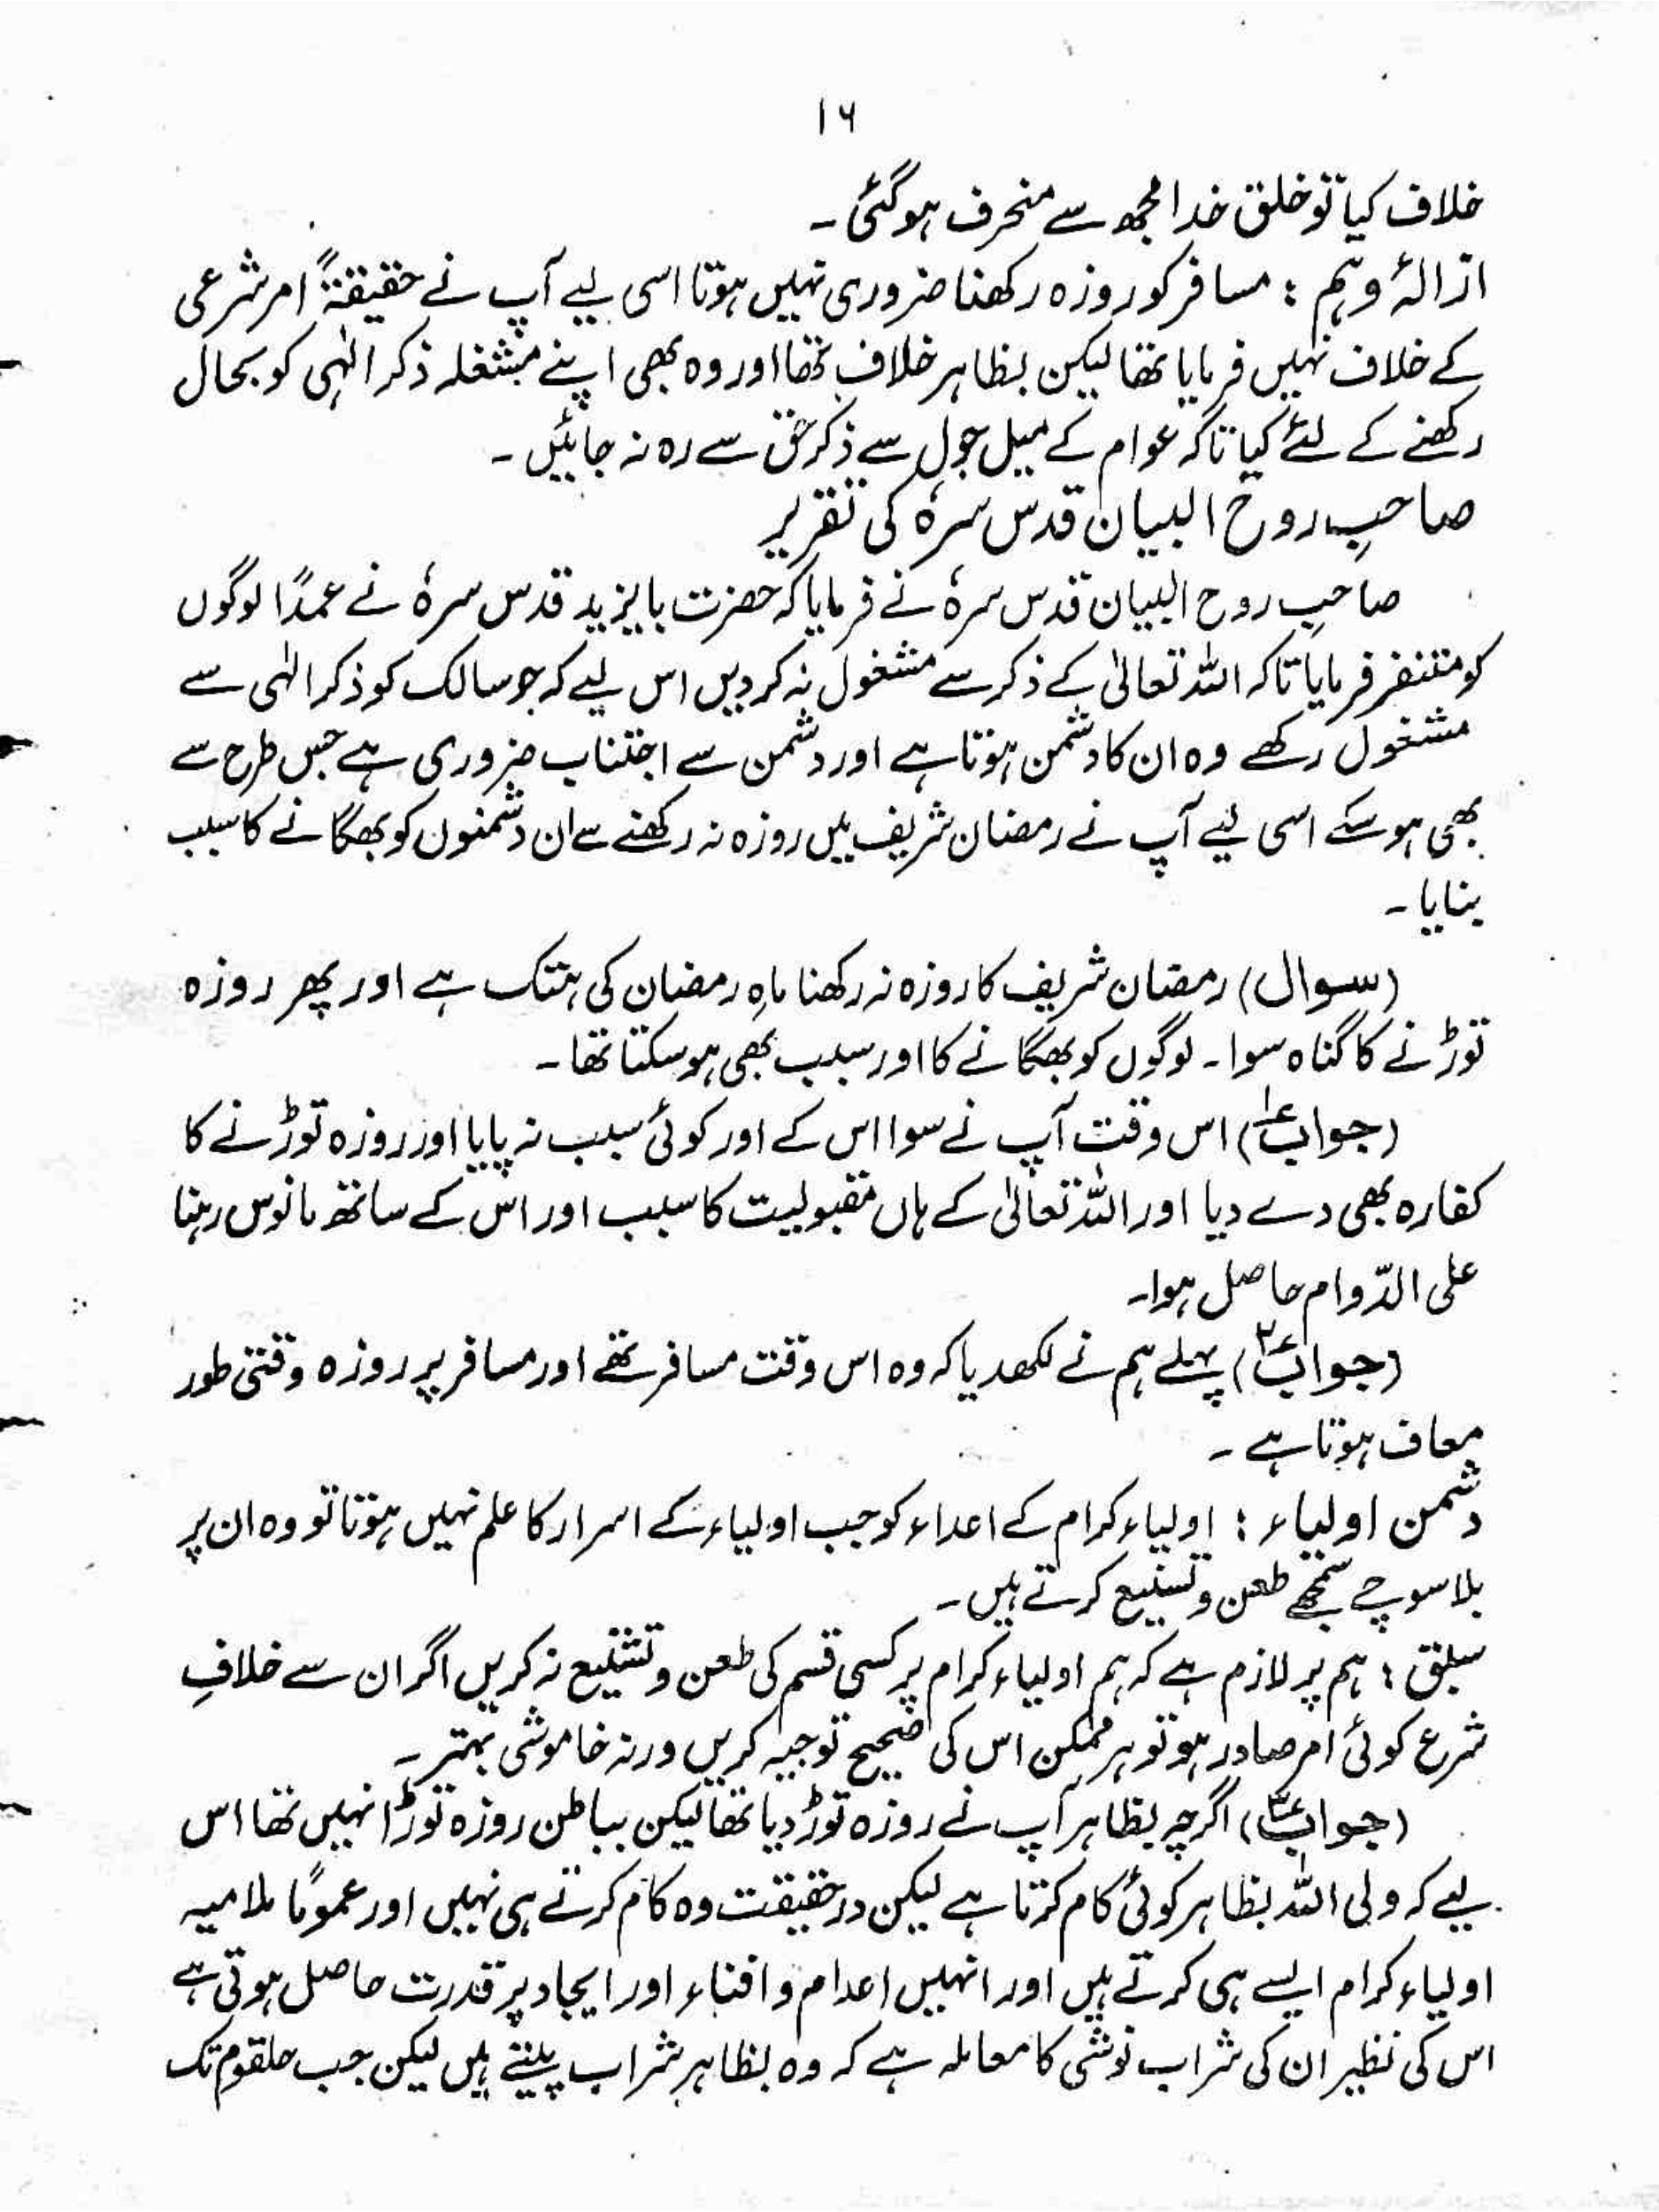 ۱۶
خلاف کیا تو خلق خدا مجھ سے منحرف ہوگئی۔
ازالۂ وہم : مسافر کو روزہ رکھنا ضروری نہیں ہوتا اسی لیے آپ نے حقیقۃً امر شرعی
کے خلاف نہیں فرمایا تھا لیکن بظاہر خلاف تھا اور وہ بھی اپنے مشغلہ ذکر الٰہی کو بحال
رکھنے کے لئے کیا تاکہ عوام کے میل جول سے ذکر حق سے رہ نہ جائیں۔
صاحبِ روح البیان قدس سرہٗ کی تقریر
صاحبِ روح البیان قدس سرہٗ نے فرمایا کہ حضرت بایزید قدس سرہٗ نے عمدًا لوگوں
کو متنفر فرمایا تاکہ اللہ تعالیٰ کے ذکر سے مشغول نہ کردیں اس لیے کہ جو سالک کو ذکر الٰہی سے
مشغول رکھے وہ ان کا دشمن ہوتا ہے اور دشمن سے اجتناب ضروری ہے جس طرح سے
بھی ہوسکے اسی لیے آپ نے رمضان شریف میں روزہ نہ رکھنے سے ان دشمنوں کو بھگانے کا سبب
بنایا۔
(سوال) رمضان شریف کا روزہ نہ رکھنا ماہِ رمضان کی ہتک ہے اور پھر روزہ
توڑنے کا گناہ سوا۔ لوگوں کو بھگانے کا اور سبب بھی ہوسکتا تھا۔
(جواب ؏۱) اس وقت آپ نے سوا اس کے اور کوئی سبب نہ پایا اور روزہ توڑنے کا
کفارہ بھی دے دیا اور اللہ تعالیٰ کے ہاں مقبولیت کا سبب اور اس کے ساتھ مانوس رہنا
علی الدّوام حاصل ہوا۔
(جواب ؏۲) پہلے ہم نے لکھدیا کہ وہ اس وقت مسافر تھے اور مسافر پر روزہ وقتی طور
معاف ہوتا ہے۔
دشمن اولیاء : اولیاء کرام کے اعداء کو جب اولیاء کے اسرار کا علم نہیں ہوتا تو وہ ان پر
بلا سوچے سمجھے طعن و تشنیع کرتے ہیں۔
سبق : ہم پر لازم ہے کہ ہم اولیاء کرام پر کسی قسم کی طعن و تشنیع نہ کریں اگر ان سے خلافِ
شرع کوئی امر صادر ہو تو ہر ممکن اس کی صحیح توجیہ کریں ورنہ خاموشی بہتر۔
(جواب ؏۳) اگرچہ بظاہر آپ نے روزہ توڑ دیا تھا لیکن بباطن روزہ توڑا نہیں تھا اس
لیے کہ ولی اللہ بظاہر کوئی کام کرتا ہے لیکن درحقیقت وہ کام کرتے ہی نہیں اور عمومًا ملامیہ
اولیاء کرام ایسے ہی کرتے ہیں اور انہیں اعدام و افناء اور ایجاد پر قدرت حاصل ہوتی ہے
اس کی نظیر ان کی شراب نوشی کا معاملہ ہے کہ وہ بظاہر شراب پیتے ہیں لیکن جب حلقوم تک